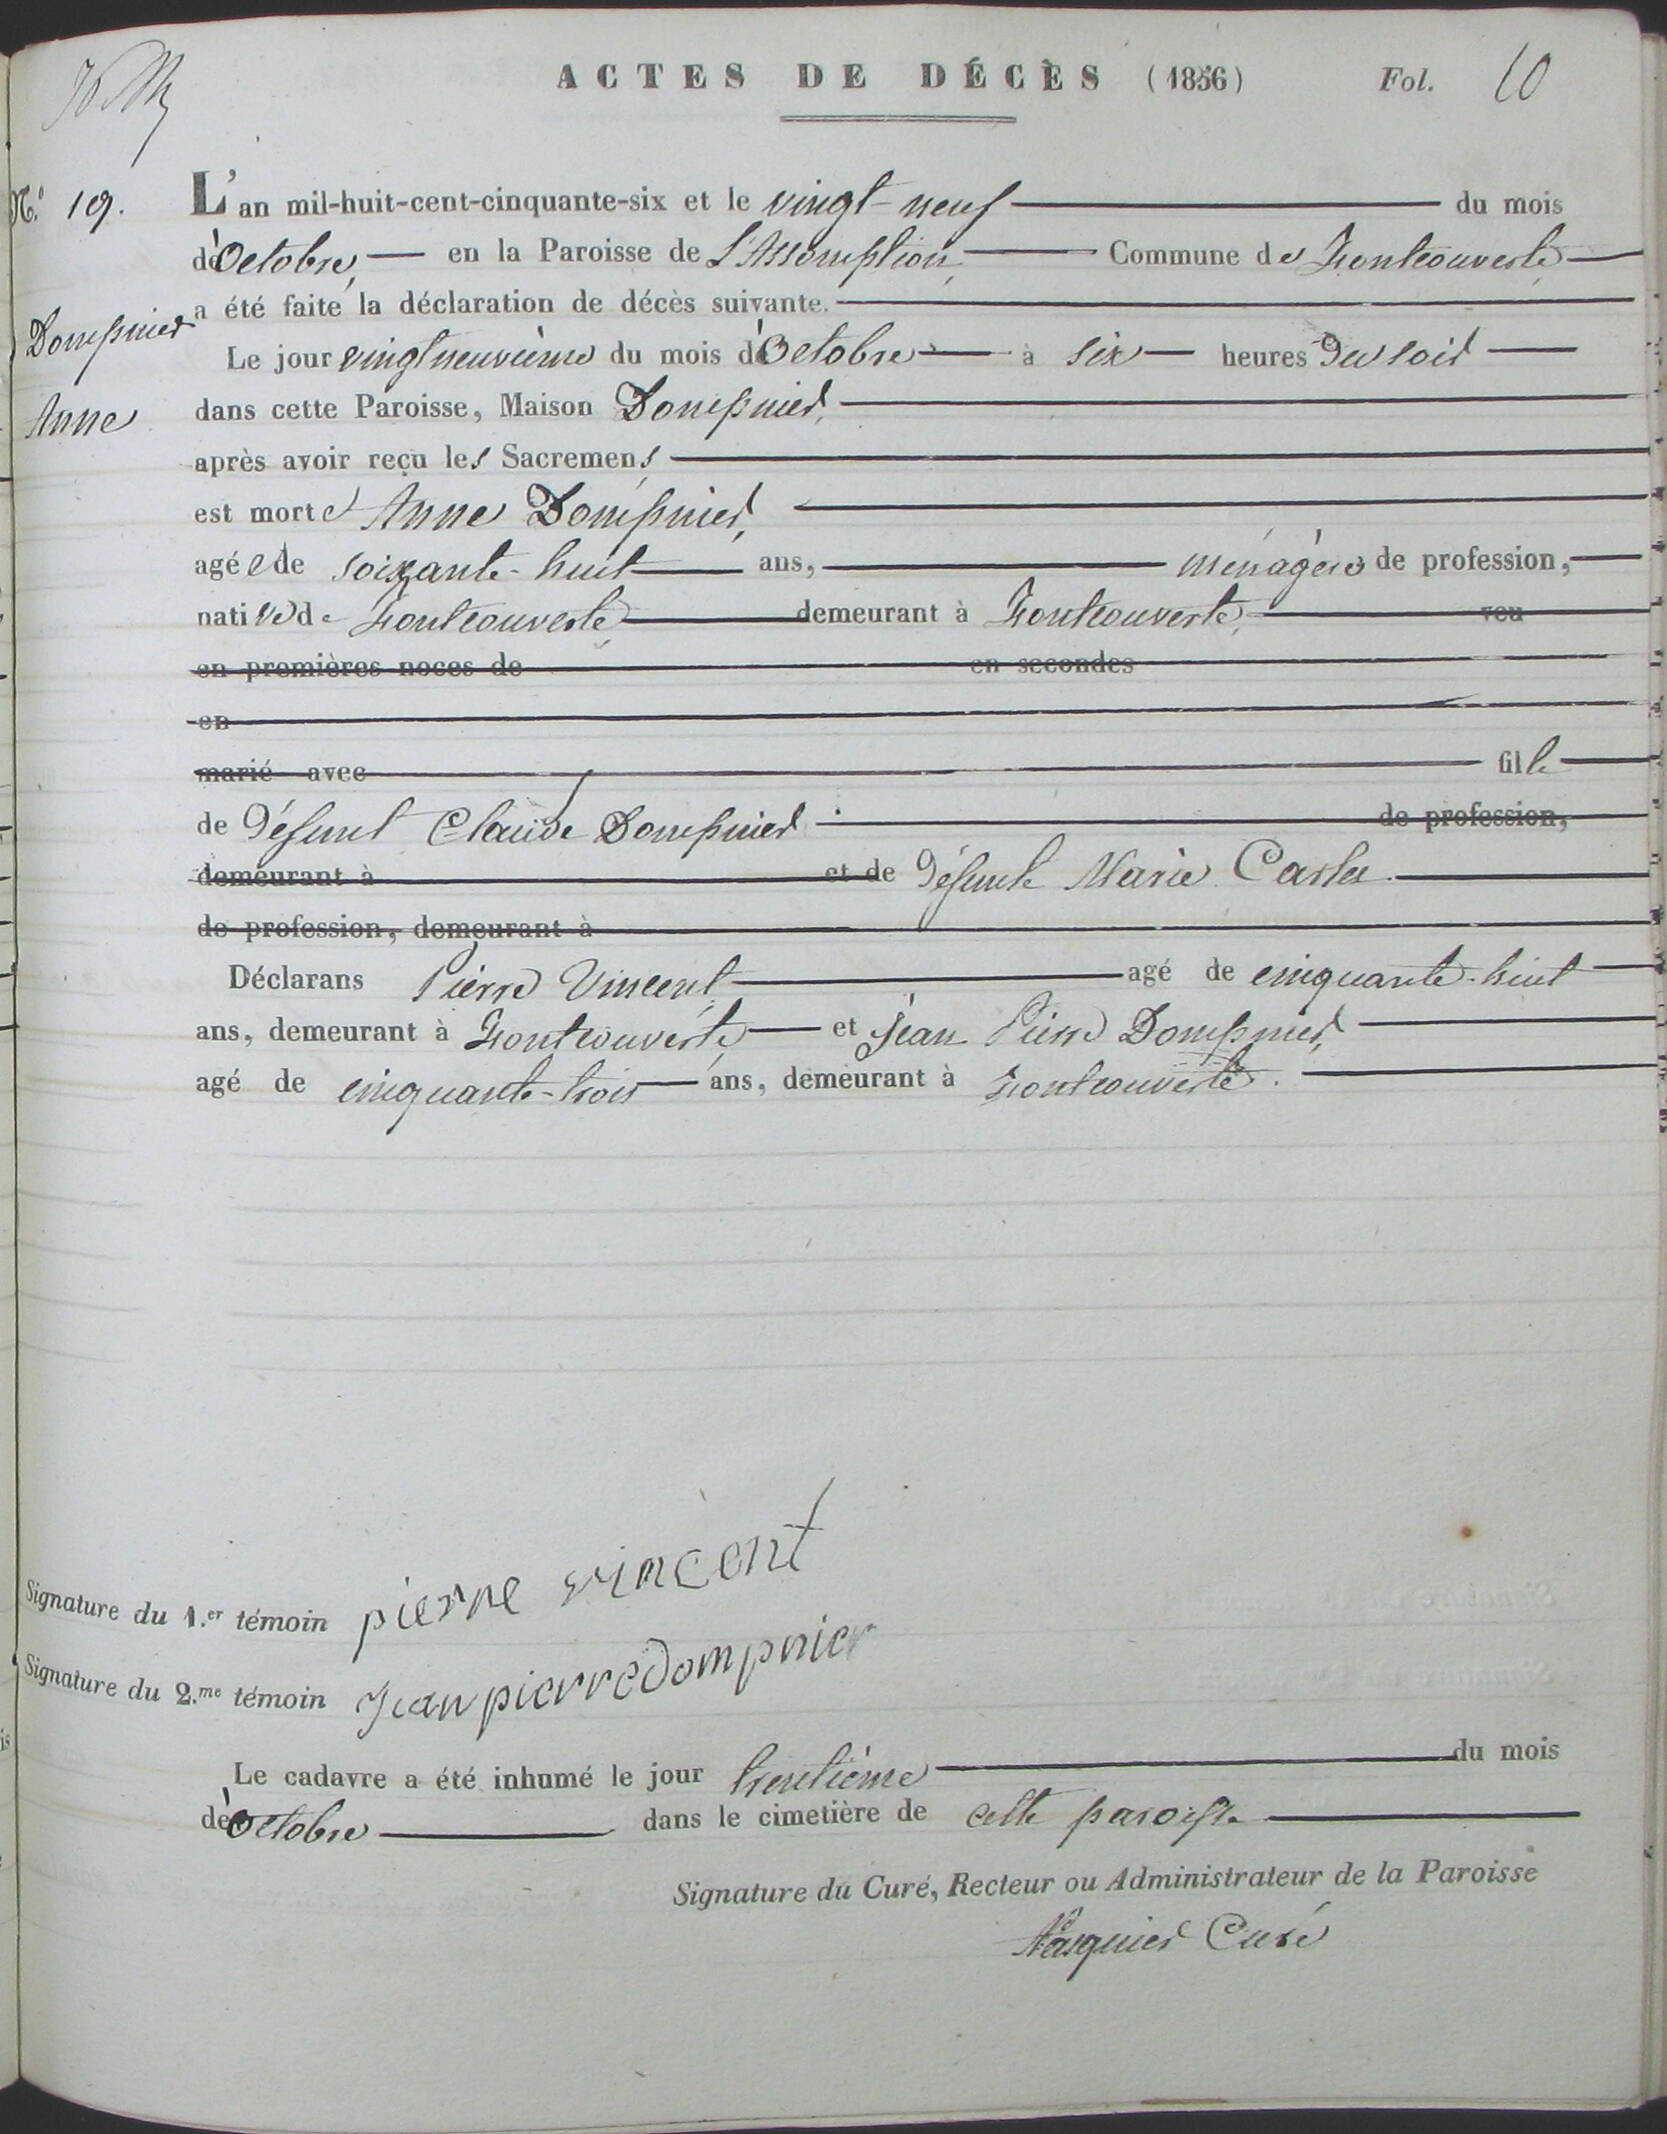 ACTES DE DÉCÈS (1856) Fol. 10
N.º 19. L'an mil-huit-cent-cinquante-six et le vingt-neuf du mois
d'Octobre, en la Paroisse de L'Assomption, Commune de Fontcouverte
a été faite la déclaration de décès suivante.
Dompnier
Le jour vingtneuvième du mois d'Octobre à six heures du soir
Anne
dans cette Paroisse, Maison Dompnier,
après avoir reçu les Sacremens
est morte Anne Dompnier,
agée de soixante-huit ans, ménagère de profession,
native de Fontcouverte, demeurant à Fontcouverte, veu
en premières noces de en secondes
en
marié avec fille
de défunt Claude Dompnier de profession,
demeurant à et de défunte Marie
de profession, demeurant à
Déclarans Pierre Vincent agé de cinquante-huit
ans, demeurant à Fontcouverte, et Jean Pierre Dompnier,
agé de cinquante-trois ans, demeurant à Fontcouverte.
Signature du 1.er témoin pierre vincent
Signature du 2.me témoin Jean pierre dompnier
Le cadavre a été inhumé le jour trentième du mois
d'octobre dans le cimetière de cette paroisse
Signature du Curé, Recteur ou Administrateur de la Paroisse
Curé